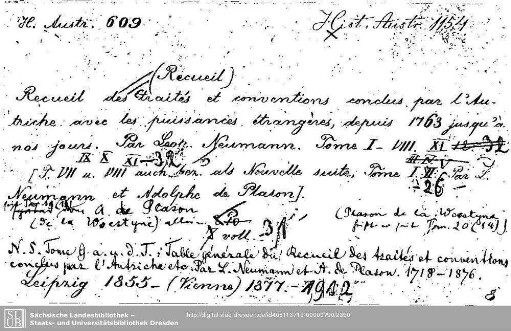 H. Austr. 609
Hist. Austr. 1154
(Recueil)
Recueil des traités et conventions conclus par l'Au-
triche avec les puissances étrangères, depuis 1763 jusqu'à
nos jours. Par Leop. Neumann. Tome I-VIII. XI
IX X XI-32
[T. VII u. VIII auch bez. als Nouvelle suite, Tome I. II. Par L.
-26
Neumann et Adolphe de Plason].
A. de Plason
(de la Woestyne)
(Plason de la Woestyne
Tom. 20 (14))
X voll. 31
N. S. Tome 9 a. u. d. T.: Table générale du Recueil des traités et conventions
conclus par l'Autriche etc. Par L. Neumann et A. de Plason. 1718-1876.
Leipzig 1855- (Vienne) 1877.-1912
8
Sächsische Landesbibliothek -
Staats- und Universitätsbibliothek Dresden